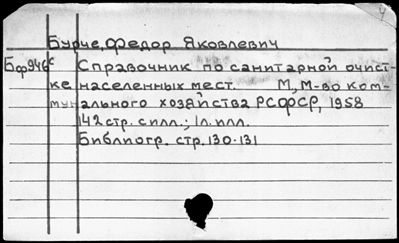 Бурче, Федор Яковлевич
Бф946с Справочник по санитарной очист-
ке населенных мест. М, М-во ком-
мунального хозяйства РСФСР, 1958
142 стр. с илл.; 1 л. илл.
Библиогр. стр. 130-131